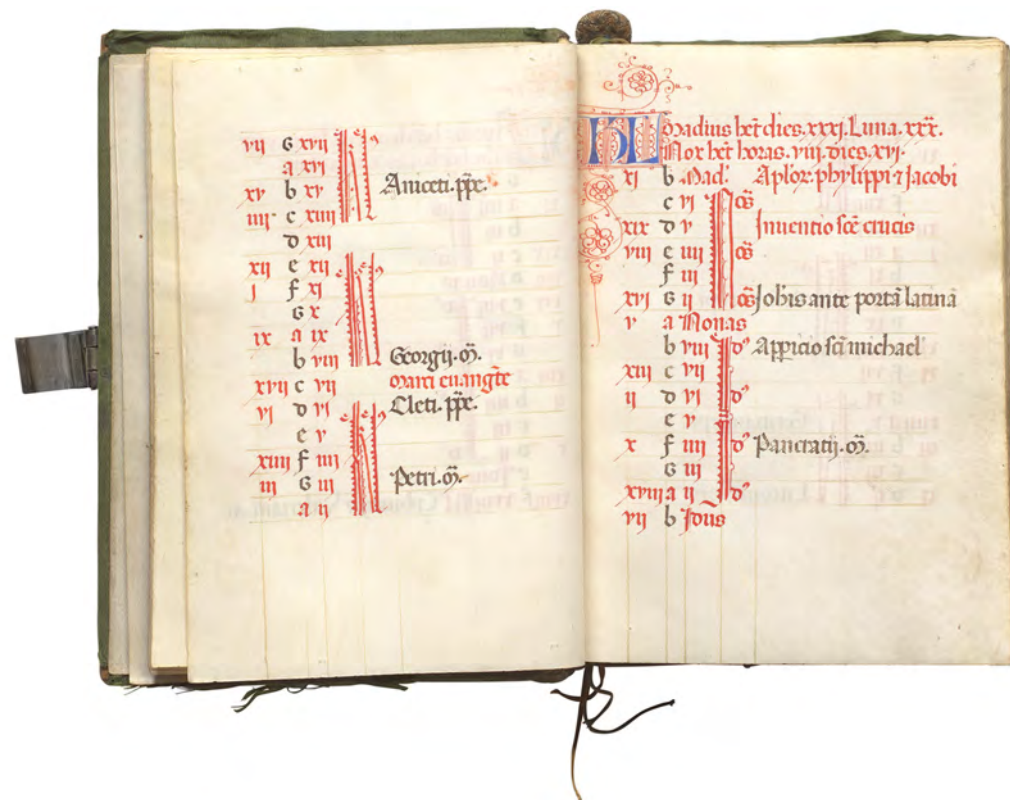 vij G xvij kl'
a xvj
xv b xv Aniceti. p̅pe.
iiij c xiiij
D xiij
xij e xij kl'
j f xj
G x
ix a ix
b viij Georgij. m̅.
xvij c vij marci
vj D vj Cleti. p̅pe.
e v kl'
xiiij f iiij
iij G iij Petri. m̅.
a ij
KL Madius h̅et dies. xxxj. Luna. xxx.
Nox h̅et horas. viij. dies. xvj.
xj b Mad. Ap̅lor. phylippi ⁊ Jacobi
c vj N o̅s
xix D v Inuentio sc̅e crucis
viij e iiij o̅s
f iij
xvj G ij o̅s Joh̅is ante portā latinā
v a Nonas
b viij I d' Apparicio sc̅i michael
xiij c vij
ij D vj d'
e v I
x f iiij d' Pancratij. m̅.
G iij
xviij a ij d'
vij b Idus